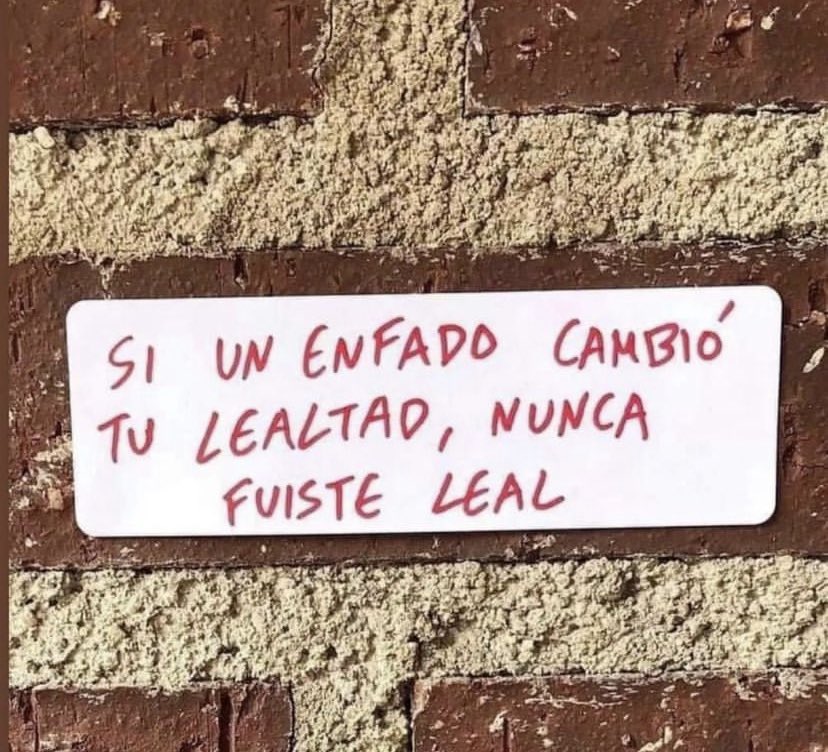 SI UN ENFADO CAMBIÓ
TU LEALTAD, NUNCA
FUISTE LEAL